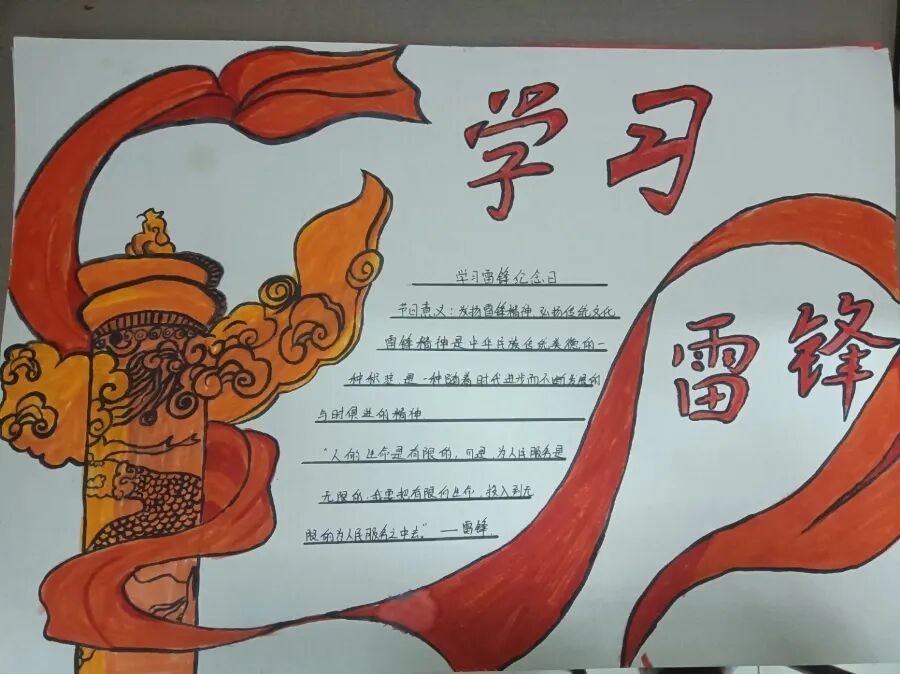 学习
雷锋
学习雷锋纪念日
节日意义：发扬雷锋精神 弘扬传统文化
雷锋精神是中华民族传统美德的一
种积淀.是一种随着时代进步而不断发展的
与时俱进的精神
“人的生命是有限的，可是，为人民服务是
无限的，我要把有限的生命，投入到无
限的为人民服务之中去。”——雷锋.